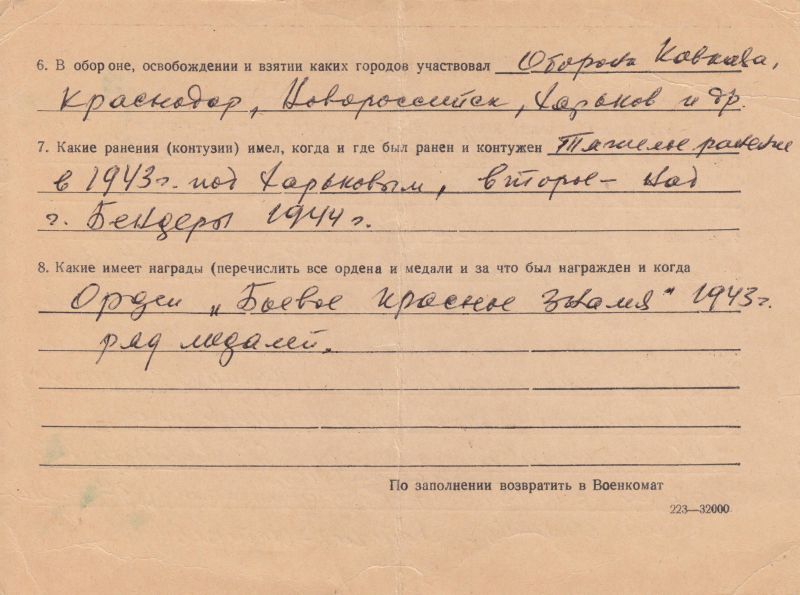 6. В обороне, освобождении и взятии каких городов участвовал Оборона Кавказа,
Краснодар, Новороссийск, Харьков и др.
7. Какие ранения (контузии) имел, когда и где был ранен и контужен Тяжелое ранение
в 1943 г. под Харьковым, второе – над
г. Бендеры 1944 г.
8. Какие имеет награды (перечислить все ордена и медали и за что был награжден и когда
Орден „Боевое Красное Знамя" 1943 г.
ряд медалей.
По заполнении возвратить в Военкомат
223—32000